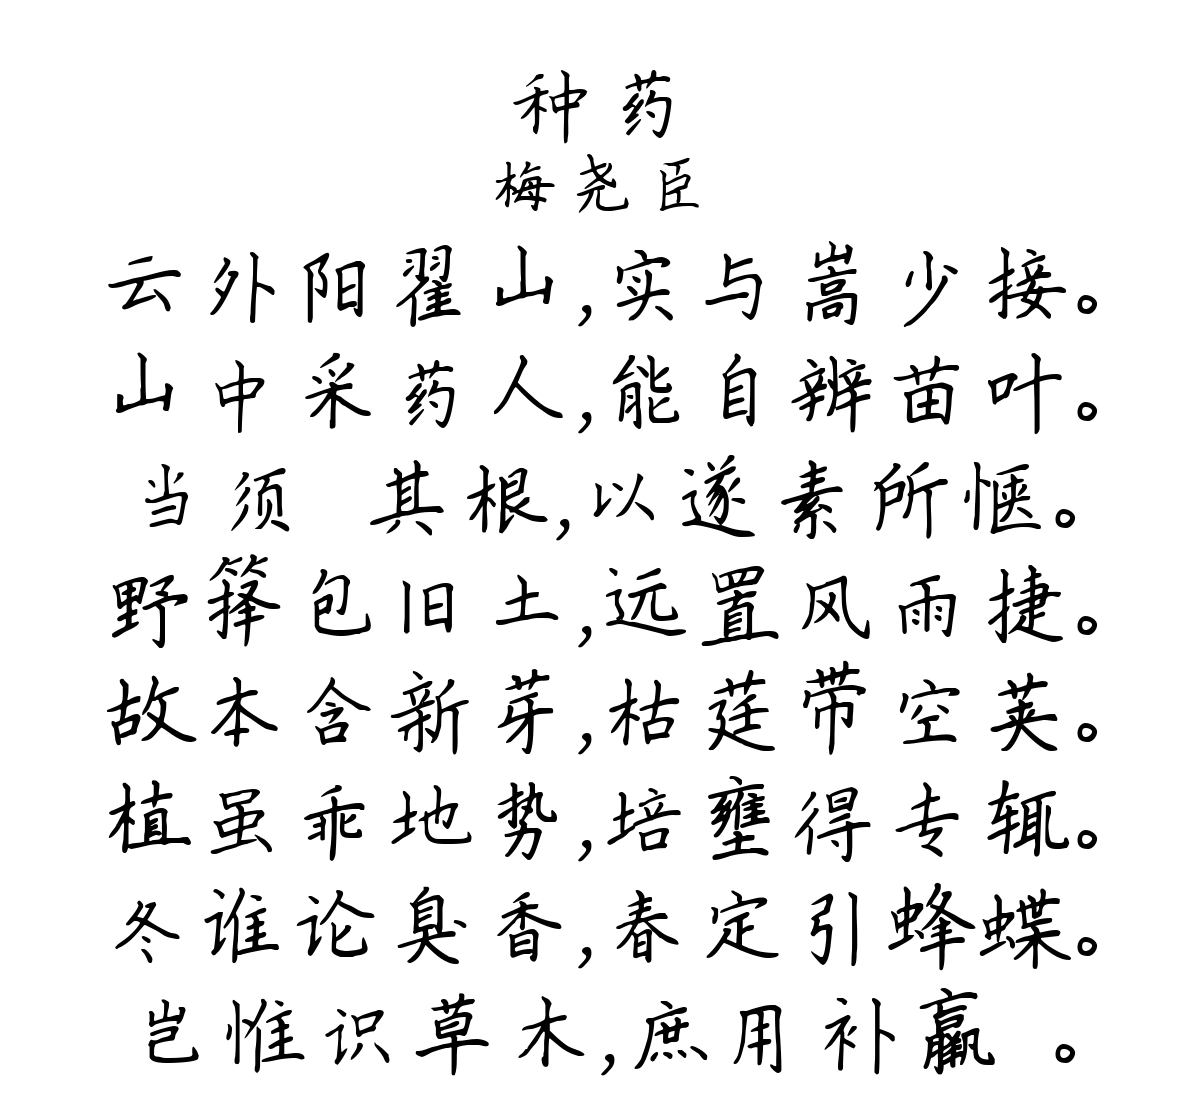 种药
梅尧臣
云外阳翟山,实与嵩少接。
山中采药人,能自辨苗叶。
当须 其根,以遂素所惬。
野箨包旧土,远置风雨捷。
故本含新芽,枯莛带空荚。
植虽乖地势,培壅得专辄。
冬谁论臭香,春定引蜂蝶。
岂惟识草木,庶用补羸 。